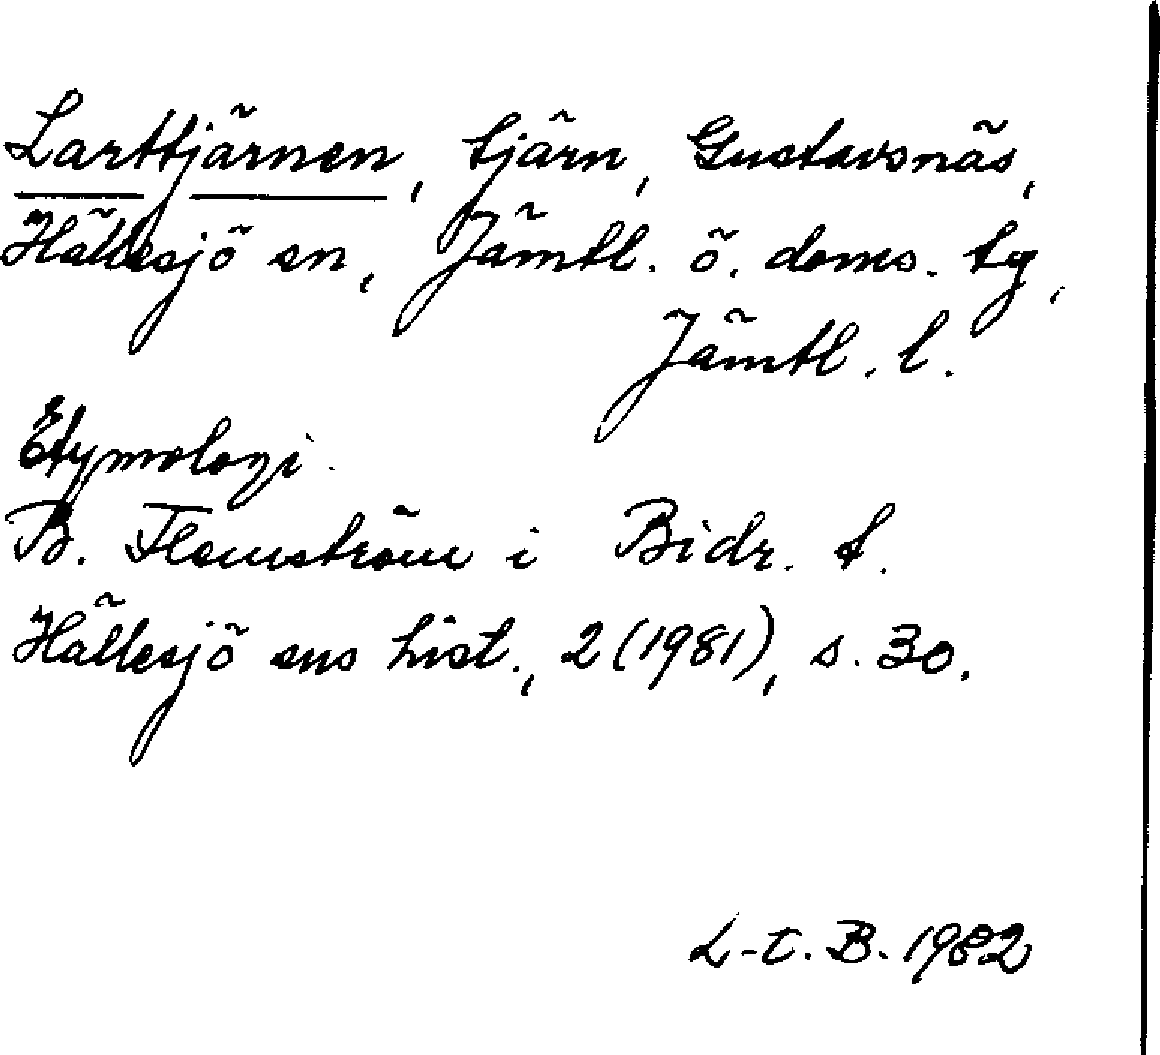 Larttjärnen, tjärn, Gustavsnäs,
Hällesjö sn, Jämtl. ö. doms. tg,
Jämtl. l.
Etymologi.
B. Flemström i Bidr. t.
Hällesjö sns hist., 2 (1981), s. 30.
L-t. B. 1982